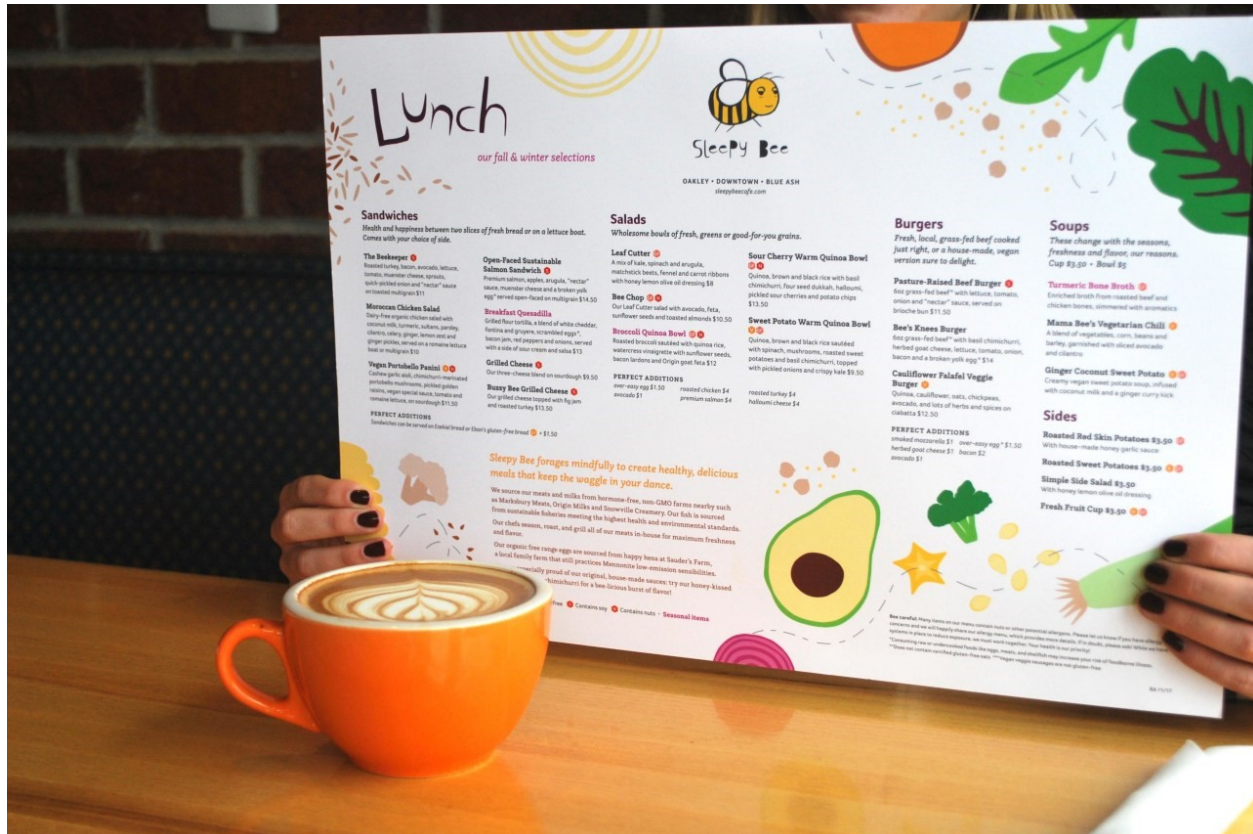 Lunch
our fall & winter selections
Sleepy Bee
OAKLEY • DOWNTOWN • BLUE ASH
sleepybeecafe.com
Sandwiches
Health and happiness between two slices of fresh bread or on a lettuce boat.
Comes with your choice of side.
The Beekeeper
Roasted turkey, bacon, avocado, lettuce,
tomato, muenster cheese, sprouts,
quick-pickled onion and "nectar" sauce
on multigrain $11
Moroccan Chicken Salad
Dairy-free organic chicken salad with
coconut milk, turmeric, sultans, parsley,
cilantro, celery, ginger, lemon zest and
ginger pickles, served on a romaine lettuce
boat or multigrain $10
Vegan Portobello Panini
Cashew garlic aioli, chimichurri-marinated
portobello mushrooms, pickled golden
raisins, vegan special sauce, tomato and
romaine lettuce, on sourdough $11.50
PERFECT ADDITIONS
Sandwiches can be served on Ezekiel bread or Eban's gluten-free bread + $1.50
Open-Faced Sustainable
Salmon Sandwich
Premium salmon, apples, arugula, "nectar"
sauce, muenster cheese and a broken yolk
egg* served open-faced on multigrain $14.50
Breakfast Quesadilla
Grilled flour tortilla, a blend of white cheddar,
fontina and gruyere, scrambled eggs*,
bacon jam, red peppers and onions, served
with a side of sour cream and salsa $13
Grilled Cheese
Our three-cheese blend on sourdough $9.50
Buzzy Bee Grilled Cheese
Our grilled cheese topped with fig jam
and roasted turkey $13.50
Salads
Wholesome bowls of fresh, greens or good-for-you grains.
Leaf Cutter
A mix of kale, spinach and arugula,
matchstick beets, fennel and carrot ribbons
with honey lemon olive oil dressing $8
Bee Chop
Our Leaf Cutter salad with avocado, feta,
sunflower seeds and toasted almonds $10.50
Broccoli Quinoa Bowl
Roasted broccoli sautéed with quinoa rice,
watercress vinaigrette with sunflower seeds,
bacon lardons and Origin goat feta $12
Sour Cherry Warm Quinoa Bowl
Quinoa, brown and black rice with basil
chimichurri, four seed dukkah, halloumi,
pickled sour cherries and potato chips
$13.50
Sweet Potato Warm Quinoa Bowl
Quinoa, brown and black rice sautéed
with spinach, mushrooms, roasted sweet
potatoes and basil chimichurri, topped
with pickled onions and crispy kale $9.50
PERFECT ADDITIONS
over-easy egg $1.50 roasted chicken $4 roasted turkey $4
avocado $1 premium salmon $4 halloumi cheese $4
Burgers
Fresh, local, grass-fed beef cooked
just right, or a house-made, vegan
version sure to delight.
Pasture-Raised Beef Burger
6oz grass-fed beef* with lettuce, tomato,
onion and "nectar" sauce, served on
brioche bun $11.50
Bee's Knees Burger
6oz grass-fed beef* with basil chimichurri,
herbed goat cheese, lettuce, tomato, onion,
bacon and a broken yolk egg* $14
Cauliflower Falafel Veggie
Burger
Quinoa, cauliflower, oats, chickpeas,
avocado, and lots of herbs and spices on
ciabatta $12.50
PERFECT ADDITIONS
smoked mozzarella $1 over-easy egg* $1.50
herbed goat cheese $1 bacon $2
avocado $1
Soups
These change with the seasons,
freshness and flavor, our reasons.
Cup $3.50 • Bowl $5
Turmeric Bone Broth
Enriched broth from roasted beef and
chicken bones, simmered with aromatics
Mama Bee's Vegetarian Chili
A blend of vegetables, corn, beans and
barley, garnished with sliced avocado
and cilantro
Ginger Coconut Sweet Potato
Creamy vegan sweet potato soup, infused
with coconut milk and a ginger curry kick
Sides
Roasted Red Skin Potatoes $3.50
With house-made honey garlic sauce
Roasted Sweet Potatoes $3.50
Simple Side Salad $3.50
With honey lemon olive oil dressing
Fresh Fruit Cup $3.50
Sleepy Bee forages mindfully to create healthy, delicious
meals that keep the waggle in your dance.
We source our meats and milks from hormone-free, non-GMO farms nearby such
as Marksbury Meats, Origin Milks and Snowville Creamery. Our fish is sourced
from sustainable fisheries meeting the highest health and environmental standards.
Our chefs season, roast, and grill all of our meats in-house for maximum freshness
and flavor.
Our organic free range eggs are sourced from happy hens at Sauder's Farm,
a local family farm that still practices Mennonite low-emission sensibilities.
especially proud of our original, house-made sauces: try our honey-kissed
chimichurri for a bee-licious burst of flavor!
free Contains soy Contains nuts • Seasonal items
Bee careful: Many items on our menu contain nuts or other potential allergens. Please let us know if you have
concerns and we will happily share our allergy menu, which provides more details. If in doubt, please ask! While we have
systems in place to reduce exposure, we must work together. Your health is our priority!
*Consuming raw or undercooked foods like eggs, meats, and shellfish may increase your risk of foodborne illness.
**Does not contain certified gluten-free oats. ***Vegan veggie sausages are not gluten-free